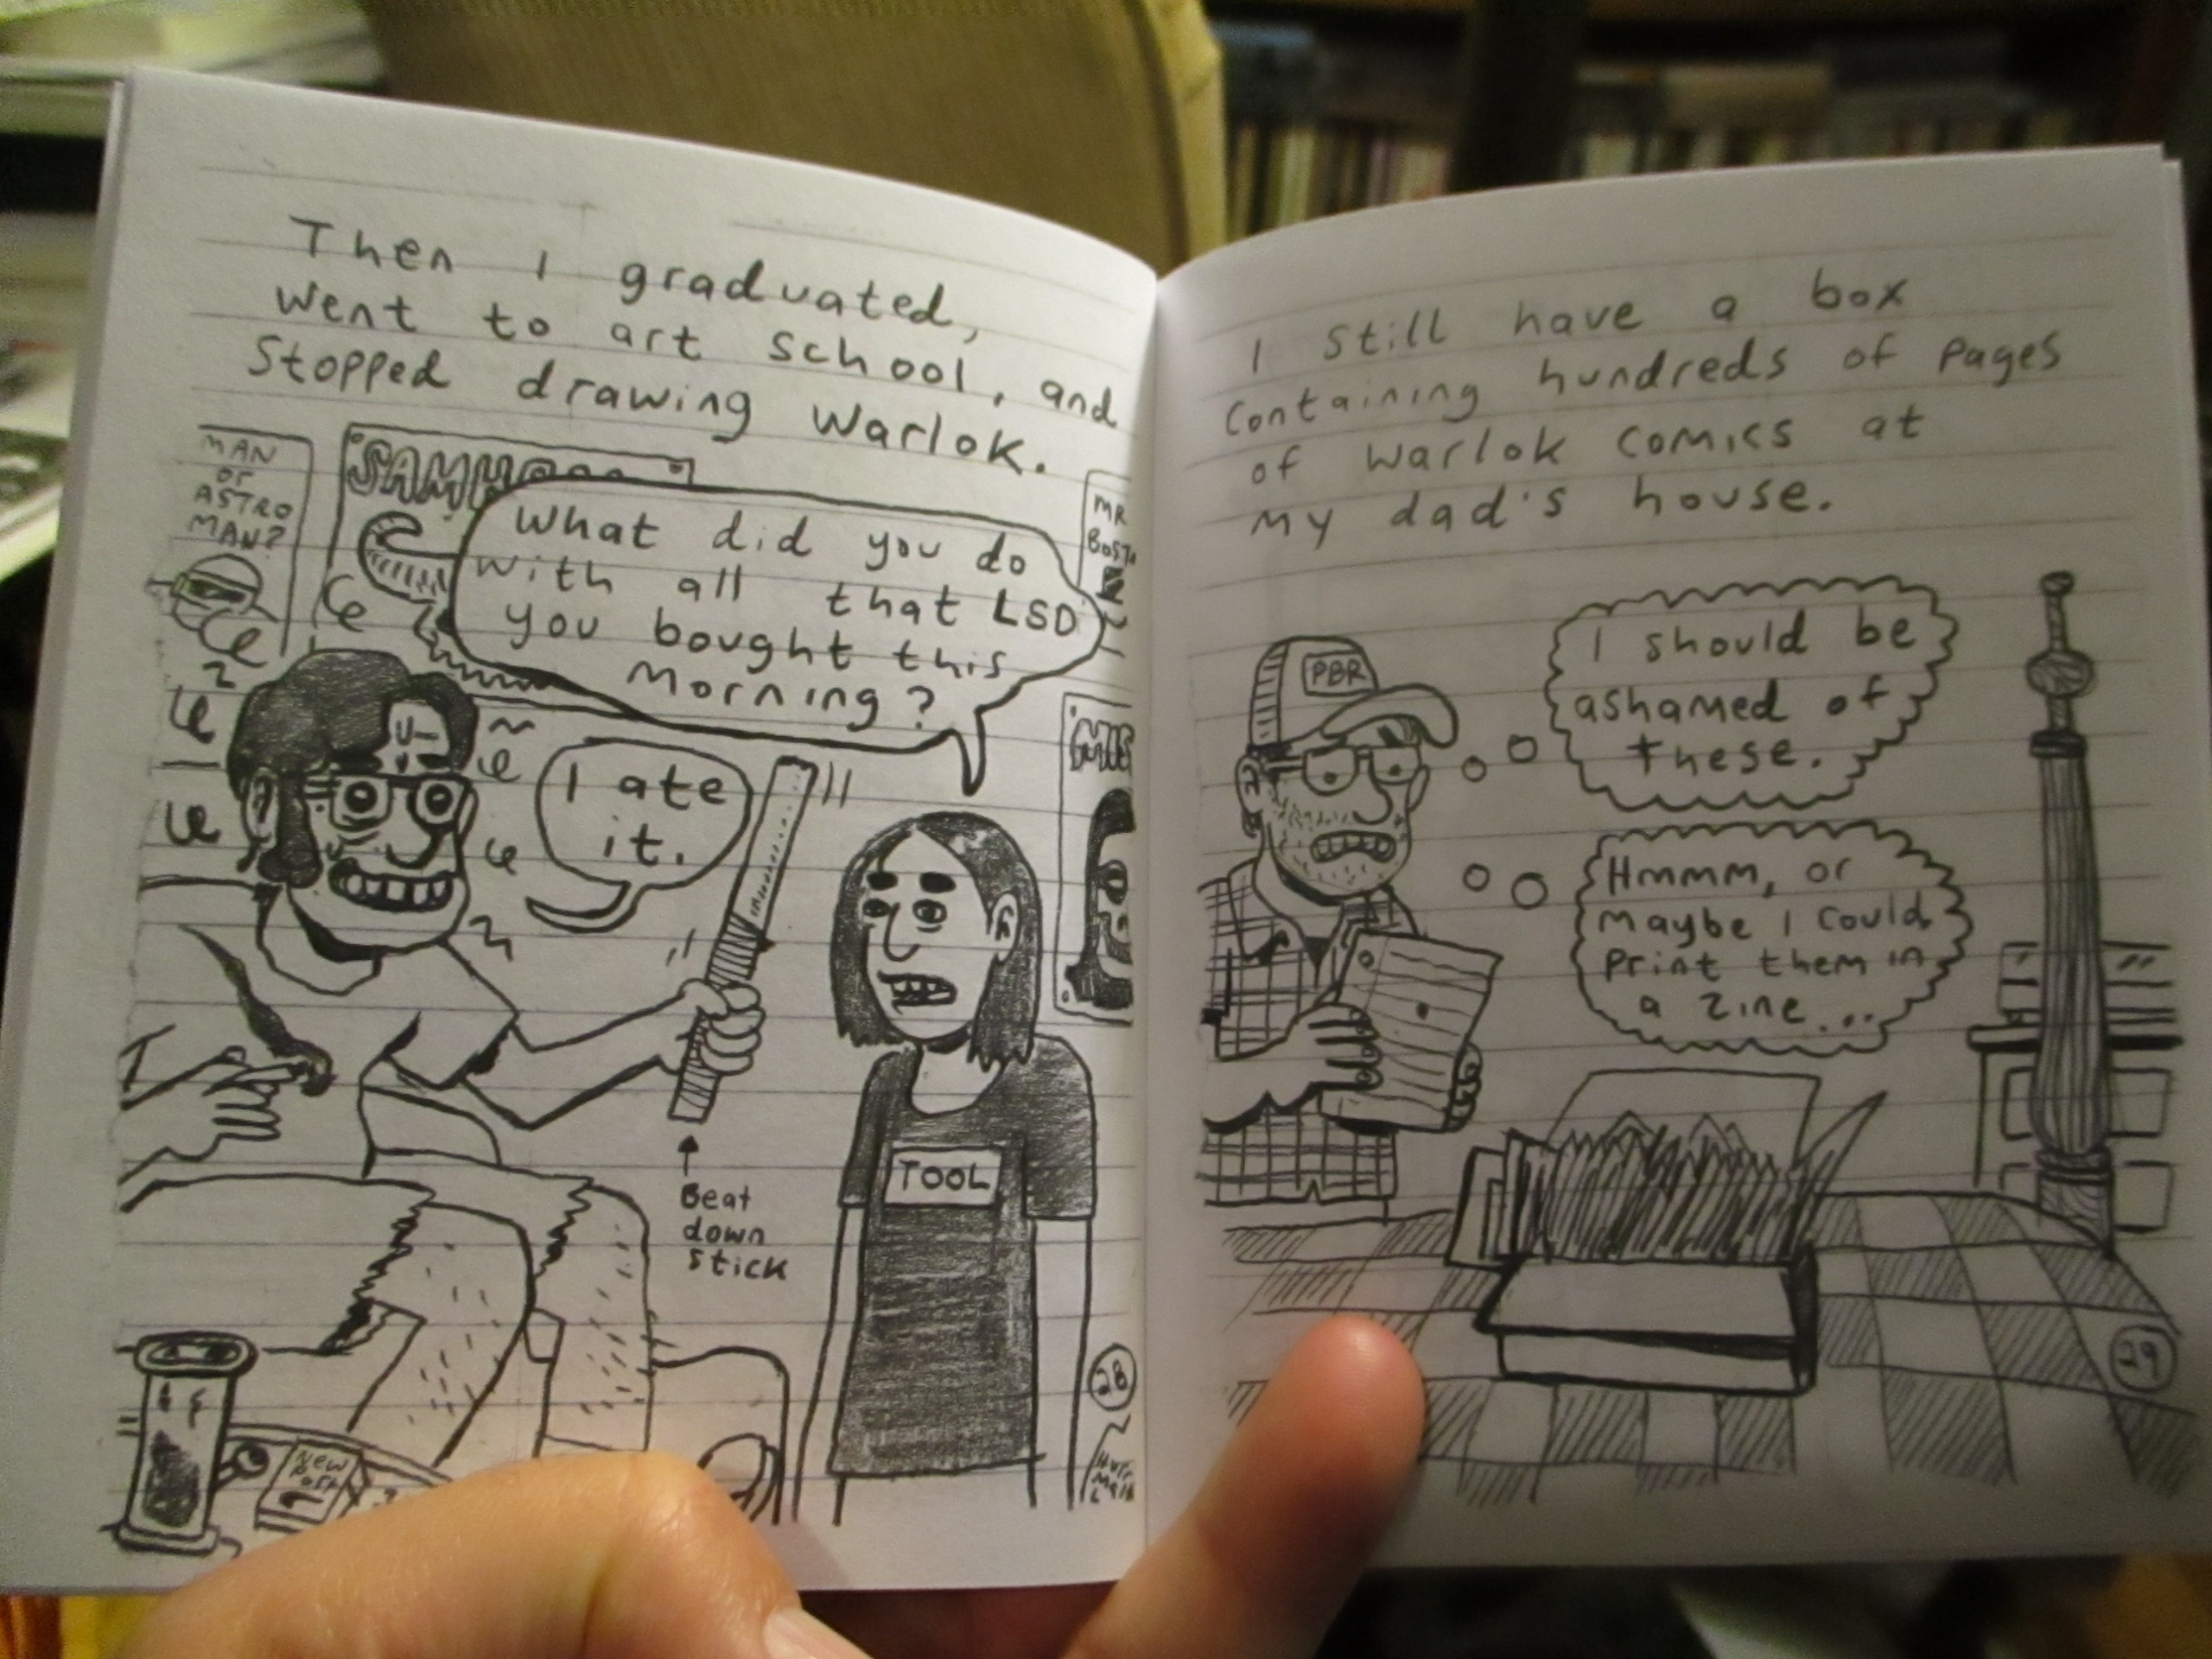 Then I graduated,
went to art school, and
stopped drawing Warlok.
MAN
or
ASTRO
MAN?
SAMH
MR
BOST
What did you do
with all that LSD
you bought this
morning?
I ate
it.
MIS
TOOL
Beat
down
stick
NEW
PORT
28
I still have a box
containing hundreds of pages
of Warlok comics at
my dad's house.
PBR
I should be
ashamed of
these.
Hmmm, or
maybe I could
print them in
a zine...
29